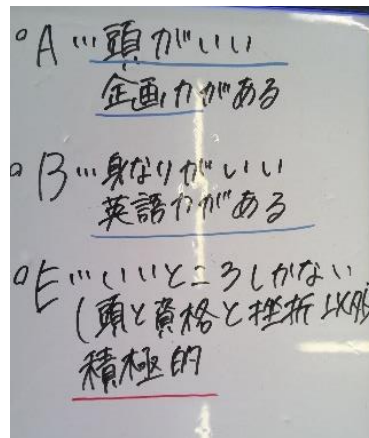 °A…頭がいい
企画力がある
°B…身なりがいい
英語力がある
°E…いいところしかない
(頭と資格と挫折以外
積極的